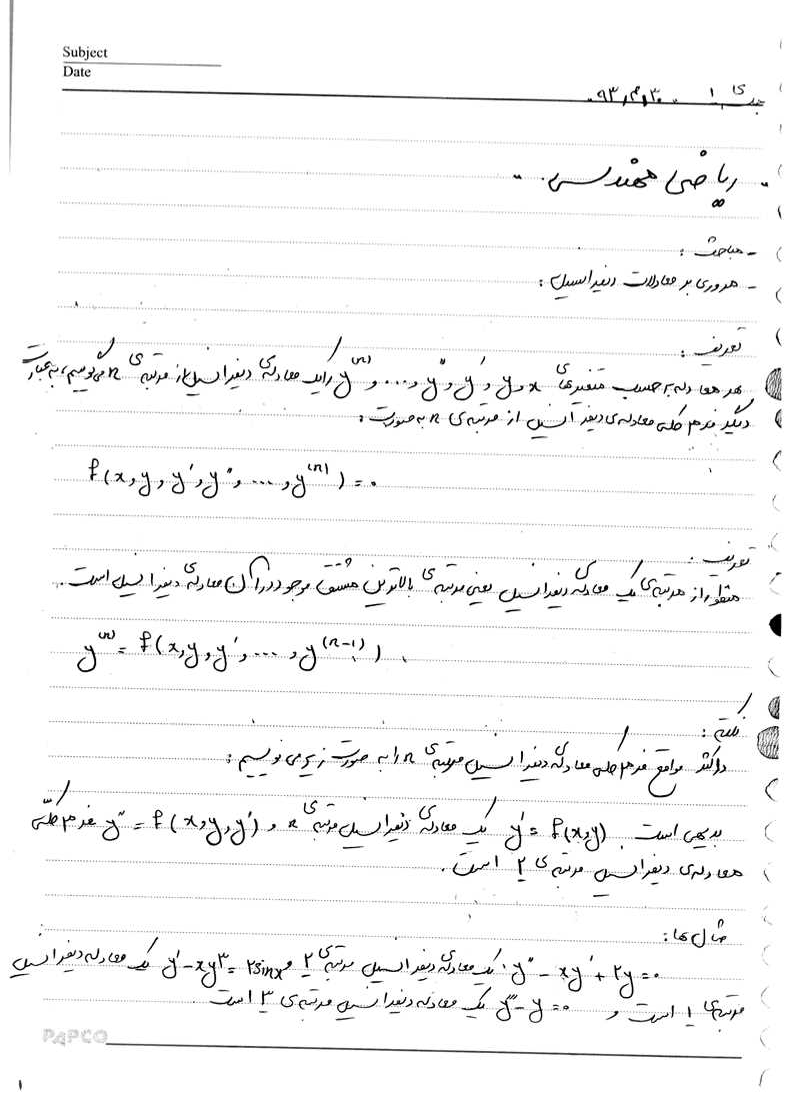 Subject
Date
جلسه‌ی ۱ ۹۳٫۴٫۳۰
ریاضی مهندسی
- مباحث :
- مروری بر معادلات دیفرانسیل :
تعریف :
هر معادله بر حسب متغیرهای x و y و y' و y'' و ... و y⁽ⁿ⁾ را یک معادله‌ی دیفرانسیل از مرتبه‌ی n می‌گوییم، به عبارت
دیگر فرم کلی معادله‌ی دیفرانسیل از مرتبه‌ی n به صورت :
f(x, y, y', y'', ..., y⁽ⁿ⁾) = ۰
تعریف :
منظور از مرتبه‌ی یک معادله‌ی دیفرانسیل یعنی مرتبه‌ی بالاترین مشتق موجود در آن معادله‌ی دیفرانسیل است.
y⁽ⁿ⁾ = f(x, y, y', ..., y⁽ⁿ⁻¹⁾)
نکته :
در اکثر مواقع فرم کلی معادله‌ی دیفرانسیل مرتبه‌ی n را به صورت زیر می نویسیم :
بدیهی است y' = f(x,y) یک معادله‌ی دیفرانسیل مرتبه‌ی ۱ و y'' = f(x, y, y') فرم کلی
معادله‌ی دیفرانسیل مرتبه‌ی ۲ است.
مثال ها :
y'' - xy' + ۲y = ۰ یک معادله‌ی دیفرانسیل مرتبه‌ی ۲ و y' - xy³ = ۲sinx یک معادله دیفرانسیل
مرتبه‌ی ۱ است و y''' - y = ۰ یک معادله دیفرانسیل مرتبه‌ی ۳ است.
PAPCO
۱